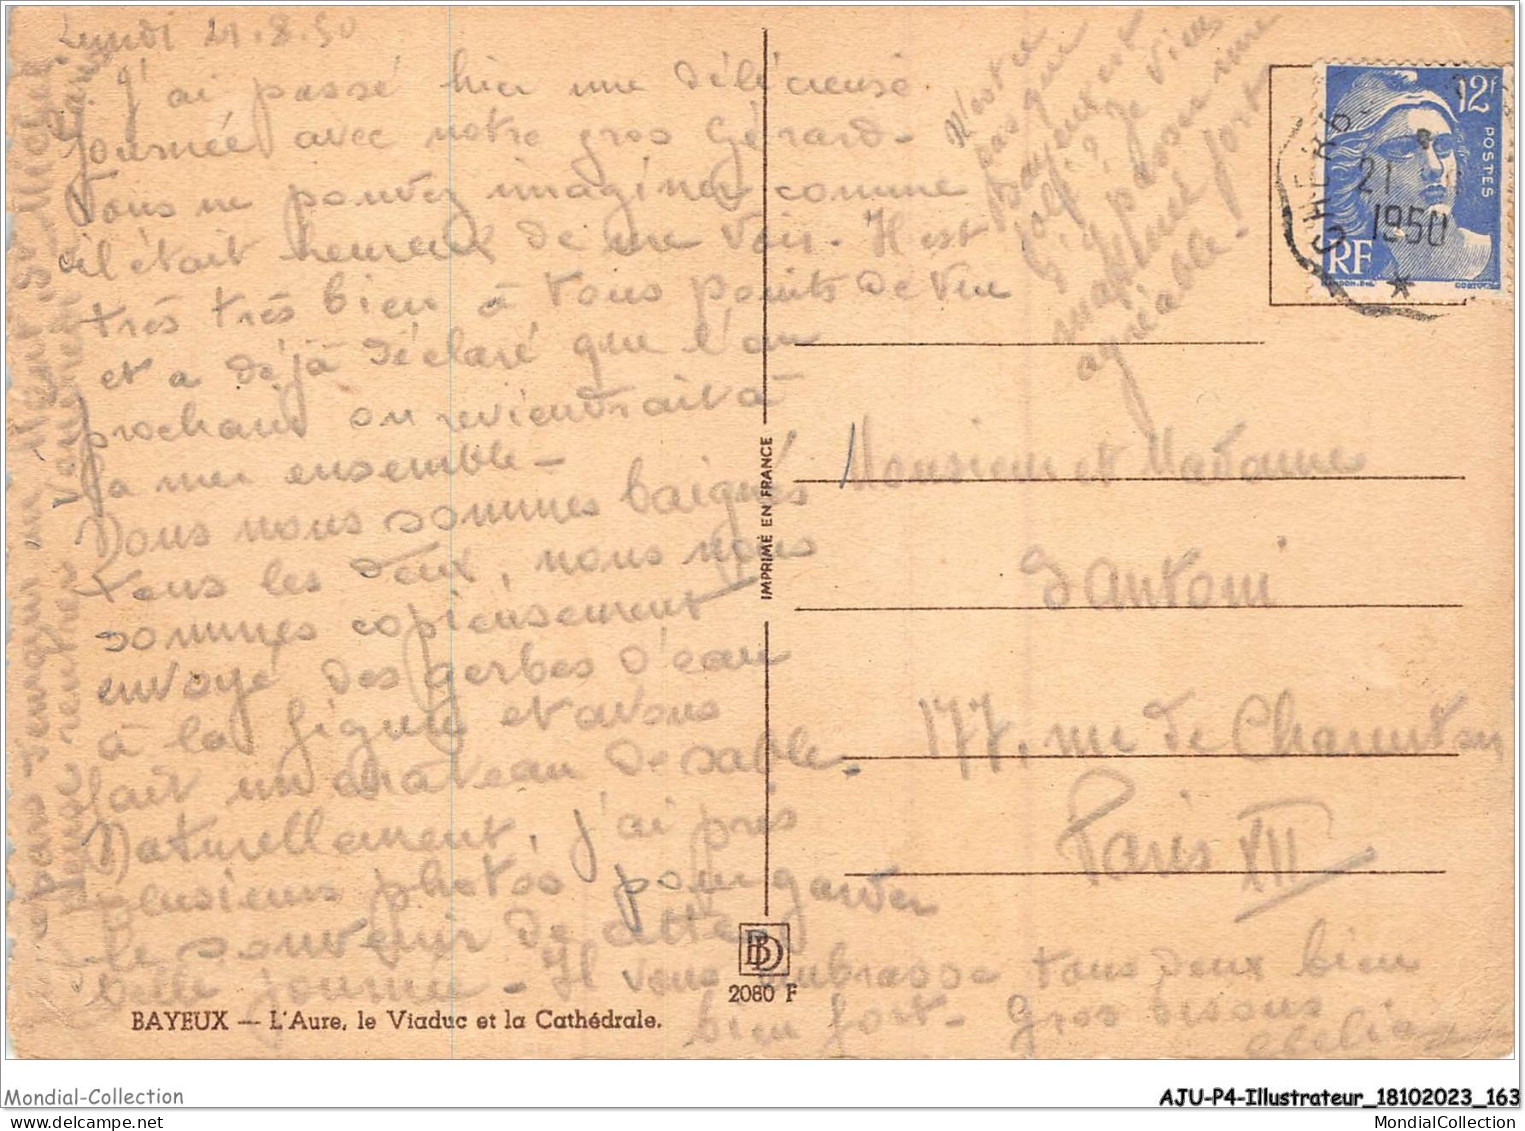 Lundi 21.8.50
J'ai passé hier une délicieuse
journée avec notre gros Gérard-
Vous ne pouvez imaginer comme
il était heureux de me voir. Il est
très très bien à tous points de vue
et a déjà déclaré que l'an
prochain on reviendrait à
la mer ensemble-
Nous nous sommes baignés
tous les deux, nous nous
sommes copieusement
envoyé des gerbes d'eau
à la figure et avons
fait un château de sable.
Naturellement, j'ai pris
plusieurs photos pour garder
le souvenir de cette
belle journée - Il vous embrasse tous deux bien
bien fort - Gros bisous
Clélia
N'est ce
pas que
Bayeux est
joli ? Je viens
d'y passer une
fort
agréable.
12F
POSTES
RF
CHERB
21
1950
IMPRIMÉ EN FRANCE
Monsieur et Madame
Santoni
177, rue de Charenton
Paris XII
BD
2080 F
BAYEUX — L'Aure, le Viaduc et la Cathédrale.
Mondial-Collection
AJU-P4-Illustrateur_18102023_163
MondialCollection